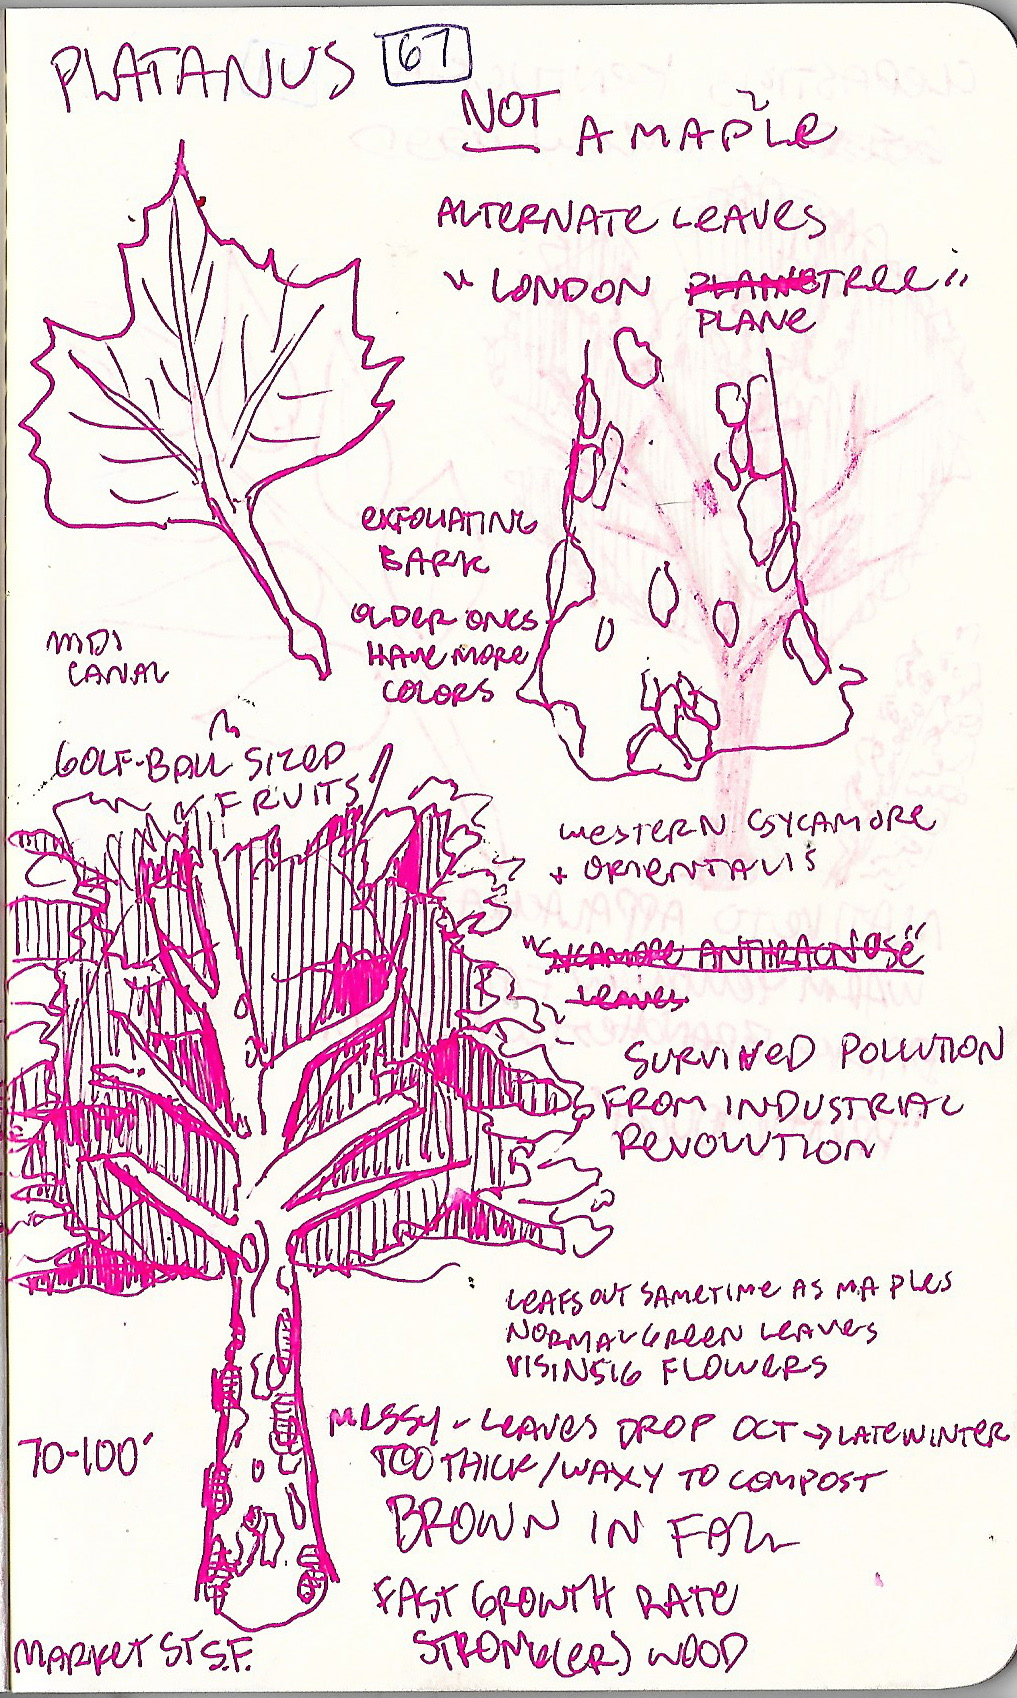 PLATANUS 67
NOT A MAPLE
ALTERNATE LEAVES
"LONDON PLANE TREE"
PLANE
EXFOLIATING
BARK
OLDER ONES
HAVE MORE
COLORS
MIDI
CANAL
GOLF-BALL SIZED
FRUITS
WESTERN SYCAMORE
+ ORIENTALIS
"SYCAMORE ANTHRACNOSE"
LEAVES
SURVIVED POLLUTION
FROM INDUSTRIAL
REVOLUTION
LEAFS OUT SAMETIME AS MAPLES
NORMAL GREEN LEAVES
FLOWERS
MESSY - LEAVES DROP OCT → LATE WINTER
TOO THICK/WAXY TO COMPOST
70-100'
BROWN IN FALL
FAST GROWTH RATE
STRONG(ER) WOOD
MARKET ST S.F.